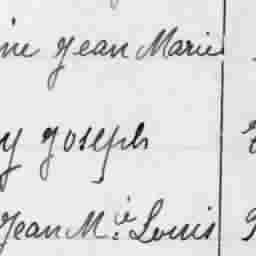 ine Jean Marie
y Joseph
Jean M.ie Louis